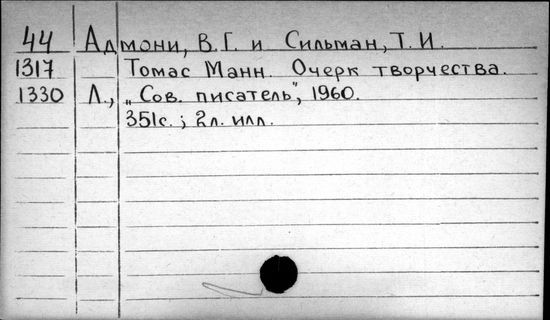 44 Адмони, В.Г. и Сильман, Т.И.
1317 Томас Манн. Очерк творчества.
1330 Л., „Сов. писатель", 1960.
351с.; 2л. илл.